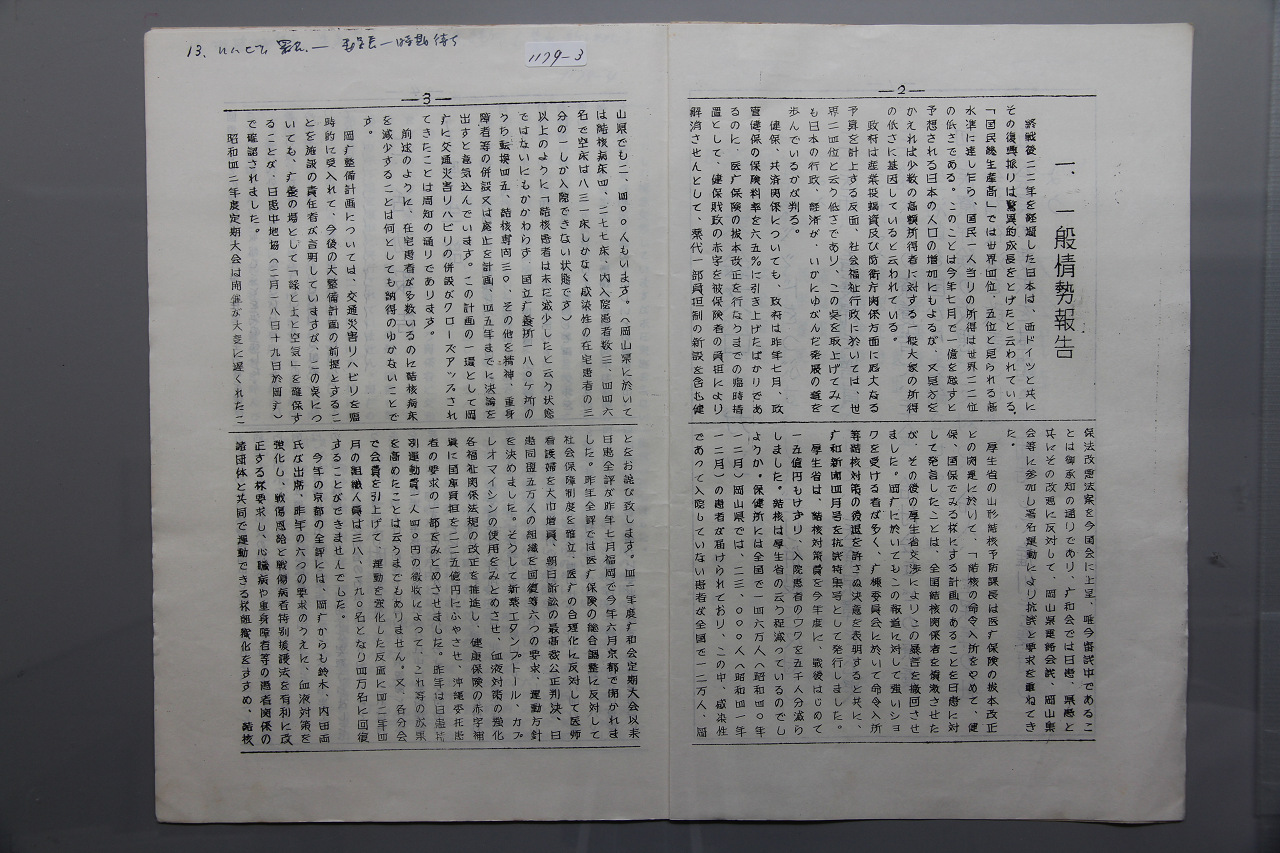 —2—
一、一般情勢報告
終戦後二二年を経過した日本は、西ドイツと共に
その復興振りは驚異的成長をとげたと云われている。
「国民総生産高」では世界四位、五位と見られる高
水準に達し乍ら、国民一人当りの所得は世界二二位
の低さである。このことは今年七月で一億を越すと
予想される日本の人口の増加にもよるが、又見方を
かえれば少数の高額所得者に対する一般大衆の所得
の低さに基因していると云われている。
政府は産業投融資及び防衛方関係方面に厖大なる
予算を計上する反面、社会福祉行政に於いては、世
界二四位と云う低さであり、この点を取上げてみて
も日本の行政、経済が、いかにゆがんだ発展の道を
歩んでいるかが判る。
健保、共済関係についても、政府は昨年七月、政
管健保の保険料率を六五%に引き上げたばかりであ
るのに、医疗保険の抜本改正を行なうまでの臨時措
置として、健保財政の赤字を被保険者の負担により
解消させんとして、薬代一部負担制の新設を含む健
保法改悪法案を今国会に上呈、唯今審議中であるこ
とは御承知の通りであり、广和会では日患、県患と
共にその改悪に反対して、岡山県連絡会議、岡山集
会等に参加し署名運動により抗議と要求を重ねてき
た。
厚生省の山形結核予防課長は医疗保険の抜本改正
との関連に於いて、「結核の命令入所をやめて、健
保、国保でみる様にする計画のあることを日患に対
して発言したことは、全国結核関係者を憤激させた
が、その後の厚生省交渉によりこの暴言を撤回させ
ました。岡疗に於いてもこの報道に対して強いショ
ックを受ける者が多く、疗棟委員会に於いて命令入所
等結核対策の後退を許さぬ決意を表明すると共に、
疗和新聞四月号を抗議特集号として発行しました。
厚生省は、結核対策費を今年度に、戦後はじめて
一五億円もけずり、入院患者のワクを五千人分減ら
しました。結核は厚生省の云う程減っているのでし
ようか。保健所には全国で一四六万人(昭和四〇年
一二月)岡山県では、二三、〇〇〇人(昭和四一年
一二月)の患者が届けられており、この中、感染性
であって入院していない患者が全国で一二万人、岡
13、リハビリ
1179-3
—3—
山県でも二、四〇〇人もいます。(岡山県に於いて
は結核病床四、二七七床、内入院患者数三、四四六
名で空床は八三一床しかなく感染性の在宅患者の三
分の一しか入院できない状態です)
以上のように「結核患者は未だ減少したと云う状態
ではないにもかかわらず、国立疗養所一八〇ケ所の
うち転換四五、結核専門三〇、その他を精神、重身
障者等の併設又は廃止を計画、四五年までに決論を
出すと意気込んでいます。この計画の一環として岡
疗に交通災害リハビリの併設がクローズアップされ
てきたことは周知の通りであります。
前述のように、在宅患者が多数いるのに結核病床
を減少することは何としても納得のゆかないことで
す。
岡疗整備計画については、交通災害リハビリを臨
時的に受入れて、今後の大整備計画の前提とするこ
とを施設の責任者が言明していますが、この点につ
いても、疗養の場として「緑と土と空気」を確保す
ることが、日患中地協(二月一八日十九日於岡疗)
で確認されました。
昭和四二年度定期大会は開催が大変に遅くれたこ
とをお詫び致します。四一年度疗和会定期大会以来
日患全評が昨年七月福岡で今年六月京都で開かれま
した。昨年全評では医疗保険の総合調整に反対して
社会保障制度を確立、医疗の合理化に反対して医師
看護婦を大巾増員、朝日訴訟の最高裁公正判決、日
患同盟五万人の組織を回復等六つの要求、運動方針
を決めました。そうして新薬エタンブトール、カプ
レオマイシンの使用をみとめさせ、血液対策の強化
各福祉関係法規の改正を推進し、健康保険の赤字補
填に国庫負担を二二五億円にふやさせ、沖縄委托患
者の要求の一部をみとめさせました。昨年は日患特
別運動費一人四〇円の徴収によって、これ等の成果
を高めたことは云うまでもありません。又、各分会
で会費を引上げて、運動を強化した反面に四二年四
月の組織人員は三八、一九〇名となり四万名に回復
することができませんでした。
今年の京都の全評には、岡疗からも鈴木、内田両
氏が出席、昨年の六つの要求のうえに、血液対策を
強化し、戦傷恩給と戦傷病者特別援護法を有利に改
正する様要求し、心臓病や重身障者等の患者関係の
諸団体と共同で運動できる様組織化をすすめ、結核